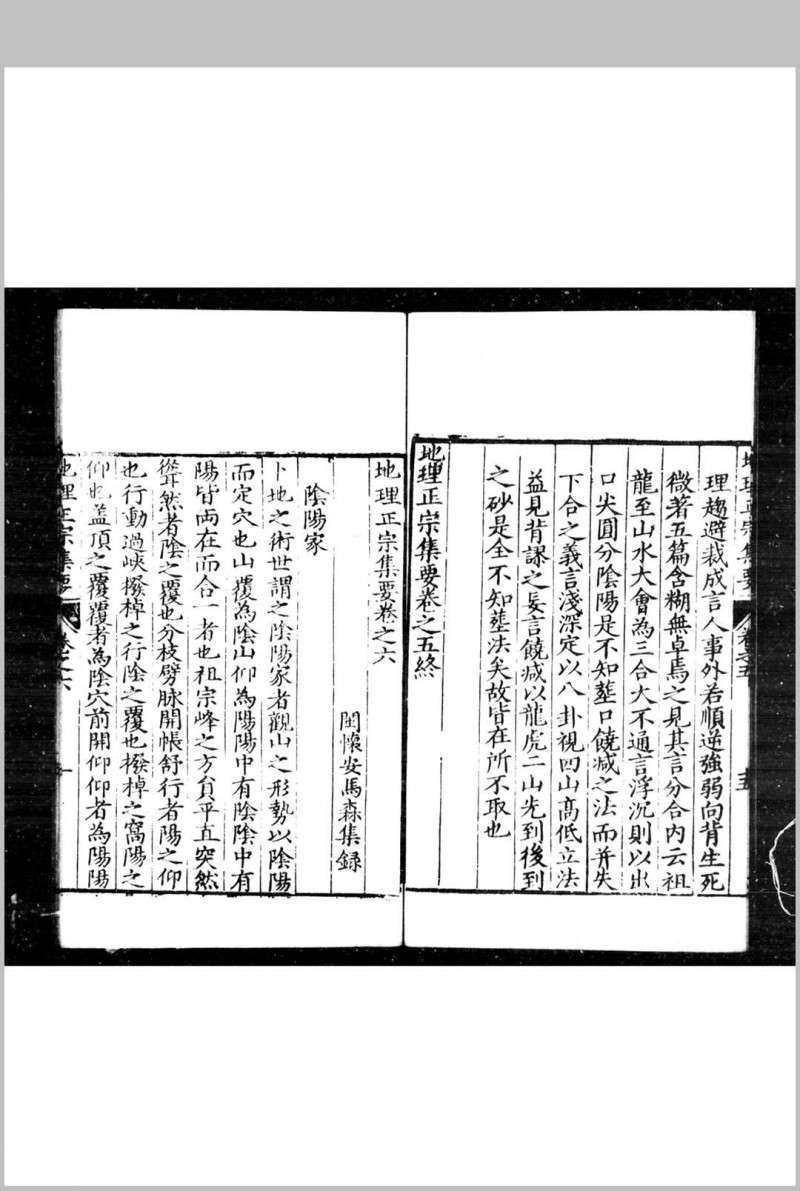 地理正宗集要　卷之五　十五
理趨避裁成言人事外若順逆強弱向背生死
微著五篇含糊無卓焉之見其言分合內云祖
龍至山水大會為三合大不通言浮沉則以出
口尖圓分陰陽是不知塟口饒减之法而并失
下合之義言淺深定以八卦視四山高低立法
益見背謬之妄言饒减以龍虎二山先到後到
之砂是全不知塟法矣故皆在所不取也
地理正宗集要卷之五終
地理正宗集要卷之六
閩懷安馬森集録
陰陽家
卜地之術世謂之陰陽家者觀山之形勢以陰陽
而定穴也山覆為陰山仰為陽陽中有陰陰中有
陽皆両在而合一者也祖宗峰之方負平直突然
聳然者陰之覆也分枝劈脉開帳舒行者陽之仰
也行動過峽撥棹之行陰之覆也撥棹之窩陽之
仰也盖頂之覆覆者為陰穴前開仰仰者為陽陽
地理正宗集要　卷之六　一